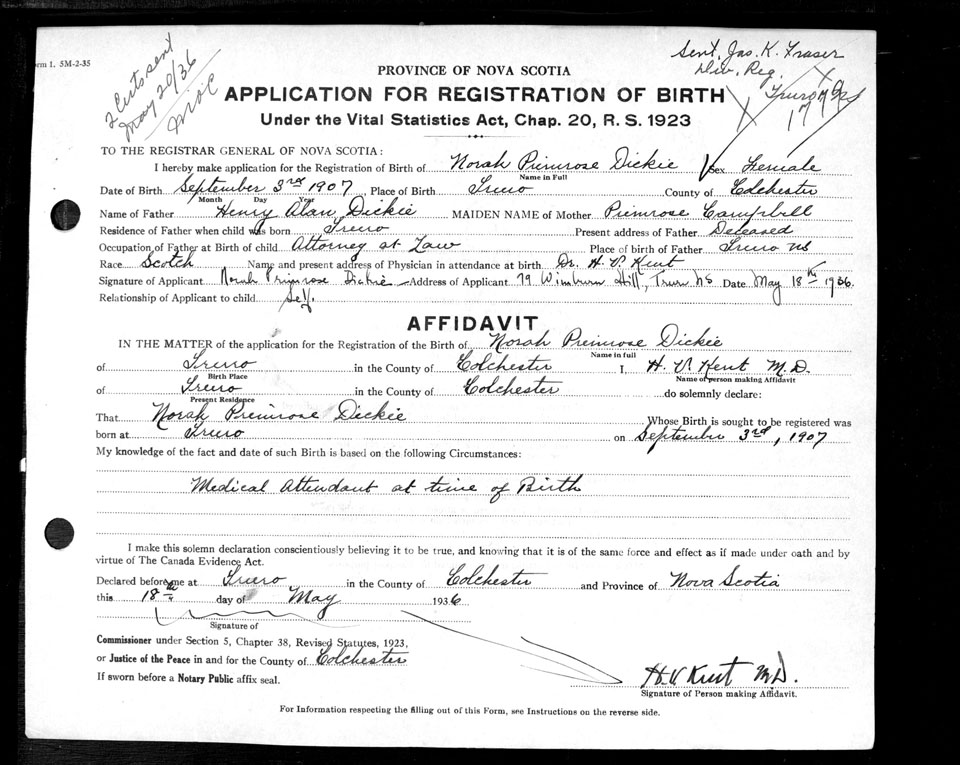 orm 1. 5M-2-35
2 Certs sent
May 20/36
Sent, Jas. K. Fraser
Div. Reg.
Truro NS
PROVINCE OF NOVA SCOTIA
APPLICATION FOR REGISTRATION OF BIRTH
Under the Vital Statistics Act, Chap. 20, R. S. 1923
TO THE REGISTRAR GENERAL OF NOVA SCOTIA:
I hereby make application for the Registration of Birth of Norah Primrose Dickie Sex Female
Name in Full
Date of Birth September 3rd 1907, Place of Birth Truro County of Colchester
Month Day Year
Name of Father Henry Alan Dickie MAIDEN NAME of Mother Primrose Campbell
Residence of Father when child was born Truro Present address of Father Deceased
Occupation of Father at Birth of child Attorney at Law Place of birth of Father Truro NS
Race Scotch Name and present address of Physician in attendance at birth Dr. H. V. Kent
Signature of Applicant Norah Primrose Dickie Address of Applicant 79 Wimburn Hill, Truro NS Date May 18th 1936.
Relationship of Applicant to child Self.
AFFIDAVIT
IN THE MATTER of the application for the Registration of the Birth of Norah Primrose Dickie
Name in full
of Truro in the County of Colchester I, H. V. Kent M.D.
Birth Place Name of person making Affidavit
of Truro in the County of Colchester do solemnly declare:
Present Residence
That Norah Primrose Dickie Whose Birth is sought to be registered was
born at Truro on September 3rd, 1907
My knowledge of the fact and date of such Birth is based on the following Circumstances:
Medical Attendant at time of Birth
I make this solemn declaration conscientiously believing it to be true, and knowing that it is of the same force and effect as if made under oath and by
virtue of The Canada Evidence Act.
Declared before me at Truro in the County of Colchester and Province of Nova Scotia
this 18th day of May 1936
Signature of
Commissioner under Section 5, Chapter 38, Revised Statutes, 1923,
or Justice of the Peace in and for the County of Colchester
If sworn before a Notary Public affix seal.
H.V Kent M.D.
Signature of Person making Affidavit.
For Information respecting the filling out of this Form, see Instructions on the reverse side.